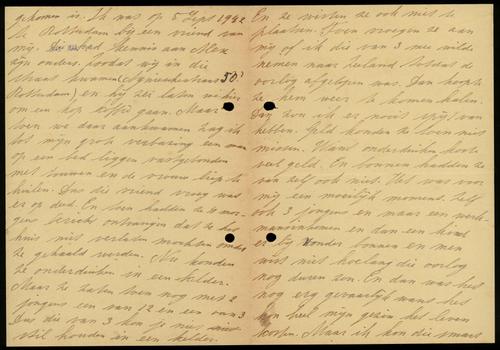 gekomen is. Ik was op 5 Sept 1942
te Rotterdam bij een vriend van
mij. Die had kennis aan Max
zijn onders. Zoodat wij in die
straat kwamen (Agniesestraat 50
Rotterdam) en hij zei laten we hier
om een kop koffie gaan. Maar
toen we daar aankwamen zag ik
tot mijn grote verbazing een man
op een bed liggen vastgebonden
met touwen en de vrouw liep te
huilen. Dus die vriend vroeg wat
er op deed. En toen hadden ze 's mor-
gens bericht ontvangen dat ze het
huis niet verlaten mochten omdat
ze gehaald werden. Nu konden
ze onderduiken in een kelder.
Maar ze zaten toen nog met 2
jongens een van 12 en een van 3
Dus die van 3 kon je niet
stil houden in een kelder.
En ze wisten ze ook niet te
plaatsen. Toen vroegen ze aan
mij of ik die van 3 mee wilde
nemen naar Zeeland totdat de
oorlog afgelopen was. Dan hoopte
ze hem weer te komen halen.
Dan zou ik er nooit spijt van
hebben. Geld konden ze toen niet
missen. Want onderduiken kostte
veel geld. En bonnen hadden ze
van zelf ook niet. Het was voor
mij een moeilijk moment. Zelf
ook 3 jongens en maar een werk-
mansinkomen en dan een kind
er bij zonder bonnen en men
wist niet hoelang die oorlog
nog duren zou. En dan was het
nog erg gevaarlijk want het
kon heel mijn gezin het leven
kosten. Maar ik kon die smart